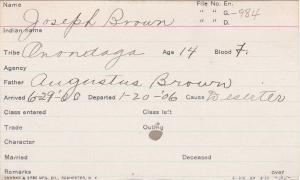 Name File No. En.
Joseph Brown " " G.-984
" " D.
Indian name
Tribe Onondaga Age 14 Blood F.
Agency
Father Augustus Brown
Arrived Departed 1-20-06 Cause Deserter
Class entered Class left
Trade Outing
Character
Married Deceased
Remarks over